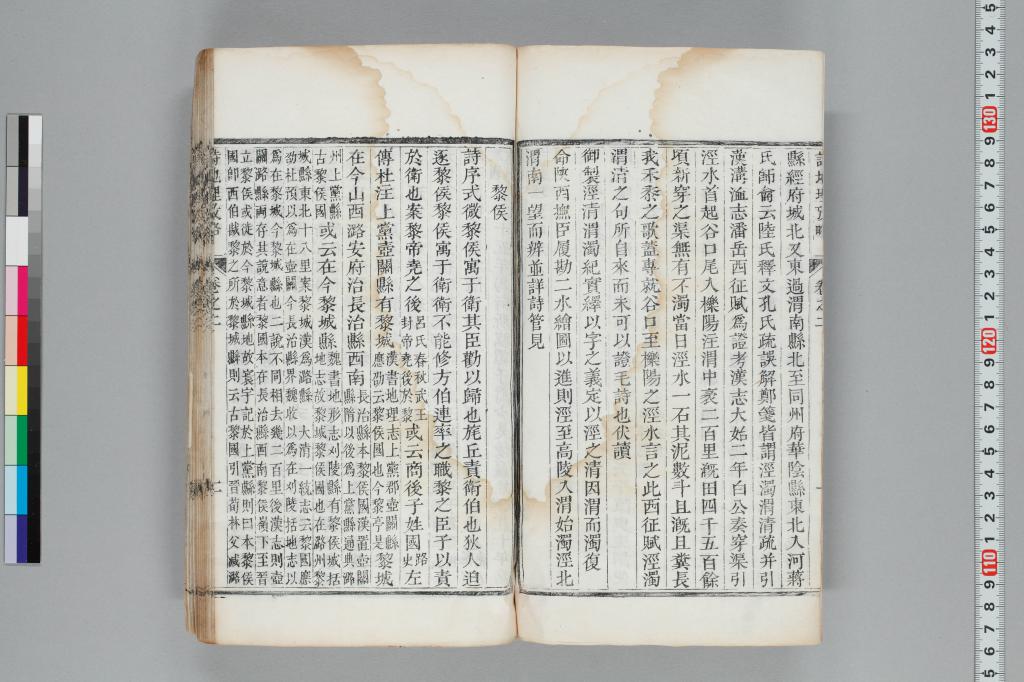 縣經府城北又東過渭南縣北至同州府華陰縣東北入河蔣
氏師爚云陸氏釋文孔氏疏誤解鄭箋皆謂涇濁渭清疏并引
漢溝洫志潘岳西征賦爲證考漢志大始二年白公奏穿渠引
涇水首起谷口尾入櫟陽注渭中袤二百里溉田四千五百餘
頃新穿之渠無有不濁當日涇水一石其泥數斗且溉且糞長
我禾黍之歌蓋專就谷口至櫟陽之涇水言之此西征賦涇濁
渭清之句所自來而未可以證毛詩也伏讀
御製涇清渭濁紀實繹以字之義定以涇之清因渭而濁復
命陝西撫臣履勘二水繪圖以進則涇至高陵入渭始濁涇北
渭南一望而辨並詳詩管見
黎侯
詩序式微黎侯寓于衛其臣勸以歸也旄丘責衛伯也狄人迫
逐黎侯黎侯寓于衛衛不能修方伯連率之職黎之臣子以責
於衛也案黎帝堯之後呂氏春秋武王封帝堯後於黎或云商後子姓國路史左
傳杜注上黨壺關縣有黎城漢書地理志上黨郡壺關縣應劭云黎侯國也今黎亭是黎城
在今山西潞安府治長治縣西南長治縣本黎侯國漢置壺關縣隋以後爲上黨縣通典潞
州上黨縣古黎侯國或云在今黎城縣魏書地形志刈陵縣有黎侯城括地志故黎城黎侯國也在潞州黎
城縣東北十八里案黎城漢爲潞縣大清一統志云黎國應
劭杜預以爲在壺關今長治縣界魏收以爲在刈陵括地志以
爲在黎城今黎城縣也二說不同相去幾二百里後漢志則壺
關潞縣兩存其說意者黎國本在長治縣西南黎侯嶺下至晉
立黎侯或徙於今黎城縣地故寰宇記於上黨縣則曰本黎侯
國卽西伯戡黎之所於黎城縣則云古黎國引晉荀林父滅潞